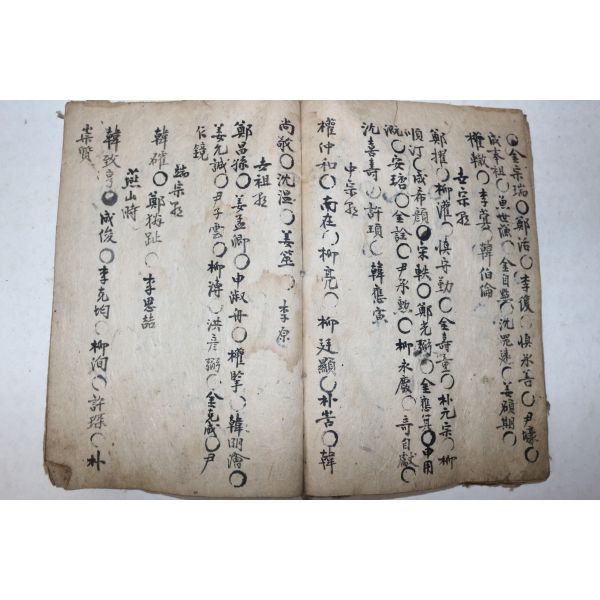 金宗瑞○鄭治○李復○慎承善○尹壕○
成奉祖○魚世謙○金自點○沈○姜碩期○
權轍○李○韓伯倫
世宗朝
鄭擢○柳灌○慎守勤○金壽童○朴元宗○柳
順汀○成希顔○宋軼○鄭光弼○金應箕○申用
漑○安瑭○金詮○尹承勲○柳永慶○奇自獻○
沈喜壽○許頊○韓應寅
中宗朝
權仲和○南在○柳亮○柳廷顯○朴訔○韓
尚敬○沈溫○姜筮○李原
世祖朝
鄭昌孫○姜孟卿○申叔舟○權擥○韓明澮○
姜允誠○尹子雲○柳溥○洪彦弼○金克成○尹
仁鏡
端宗朝
韓確○鄭麟趾○李思喆
燕山時
韓致亨○成俊○李克均○柳洵○許琛○朴
崇質